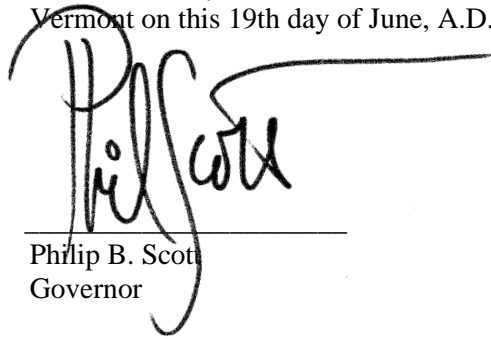 Vermont on this 19th day of June, A.D.
Phil Scott
Philip B. Scott
Governor